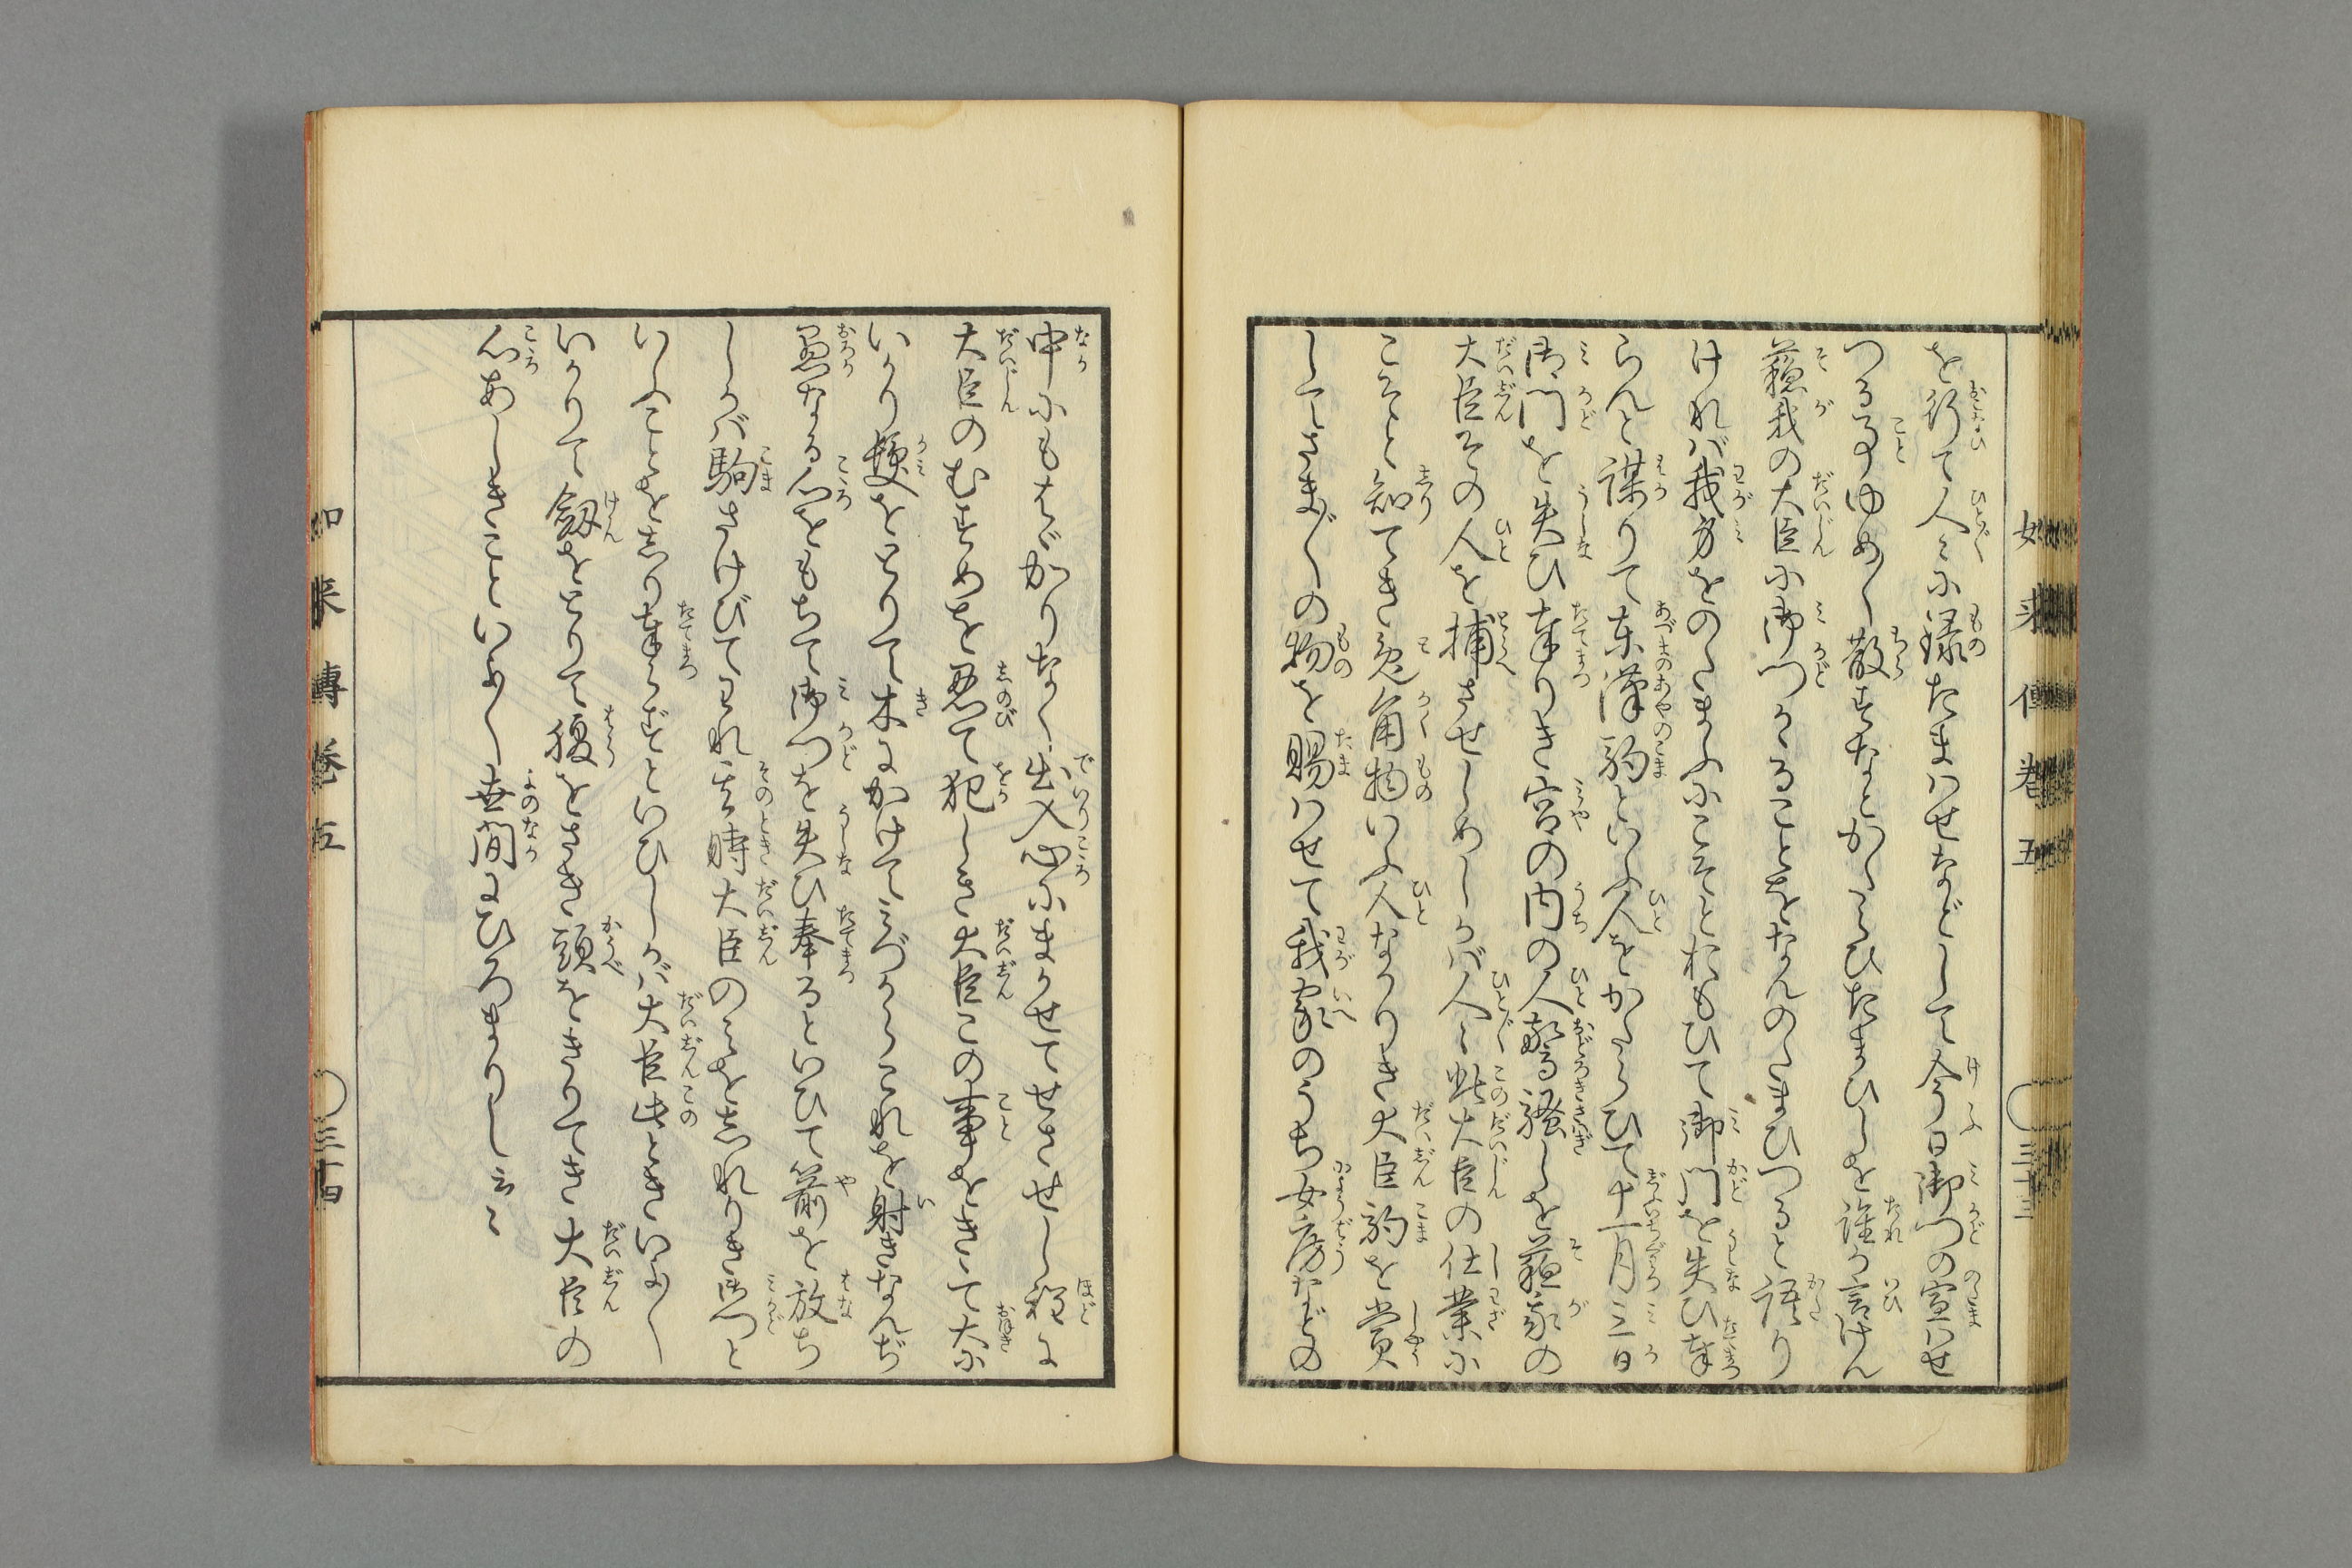 を行て人々に禄たまはせなどして今日御門の宣はせ
つる事ゆめ〳〵散すなとかたらひたまひしを誰か言けん
蘇我の大臣に御門かゝることをなんのたまひつると語り
ければ我身をのたまふにこそとおもひて御門を失ひ奉
らんと謀りて東漢駒といふ人をかたらひて十一月三日
御門を失ひ奉りき宮の内の人驚き騒しを蘇我の
大臣その人を捕させしめしかば人々此大臣の仕業に
こそと知てき兎角物いふ人なかりき大臣駒を賞
してさま〴〵の物を賜はせて我家のうち女房などの
中にもはゞかりなく出入心にまかせてせさせし程に
大臣のむすめを忍て犯しき大臣この事をきゝて大に
いかり髪をとりて木にかけてみづからこれを射きなんぢ
愚なる心をもちて御門を失ひ奉るといひて箭を放ち
しかば駒さけびてわれ其時大臣のみを志れりき御門と
いふことを志り奉らずといひしかば大臣此ときいよ〳〵
いかりて劔をとりて腹をさき頭をきりてき大臣の
心あしきこといよ〳〵世間にひろまりし云々
如来傳巻五 〇三十三
如来傳巻五 〇三十四